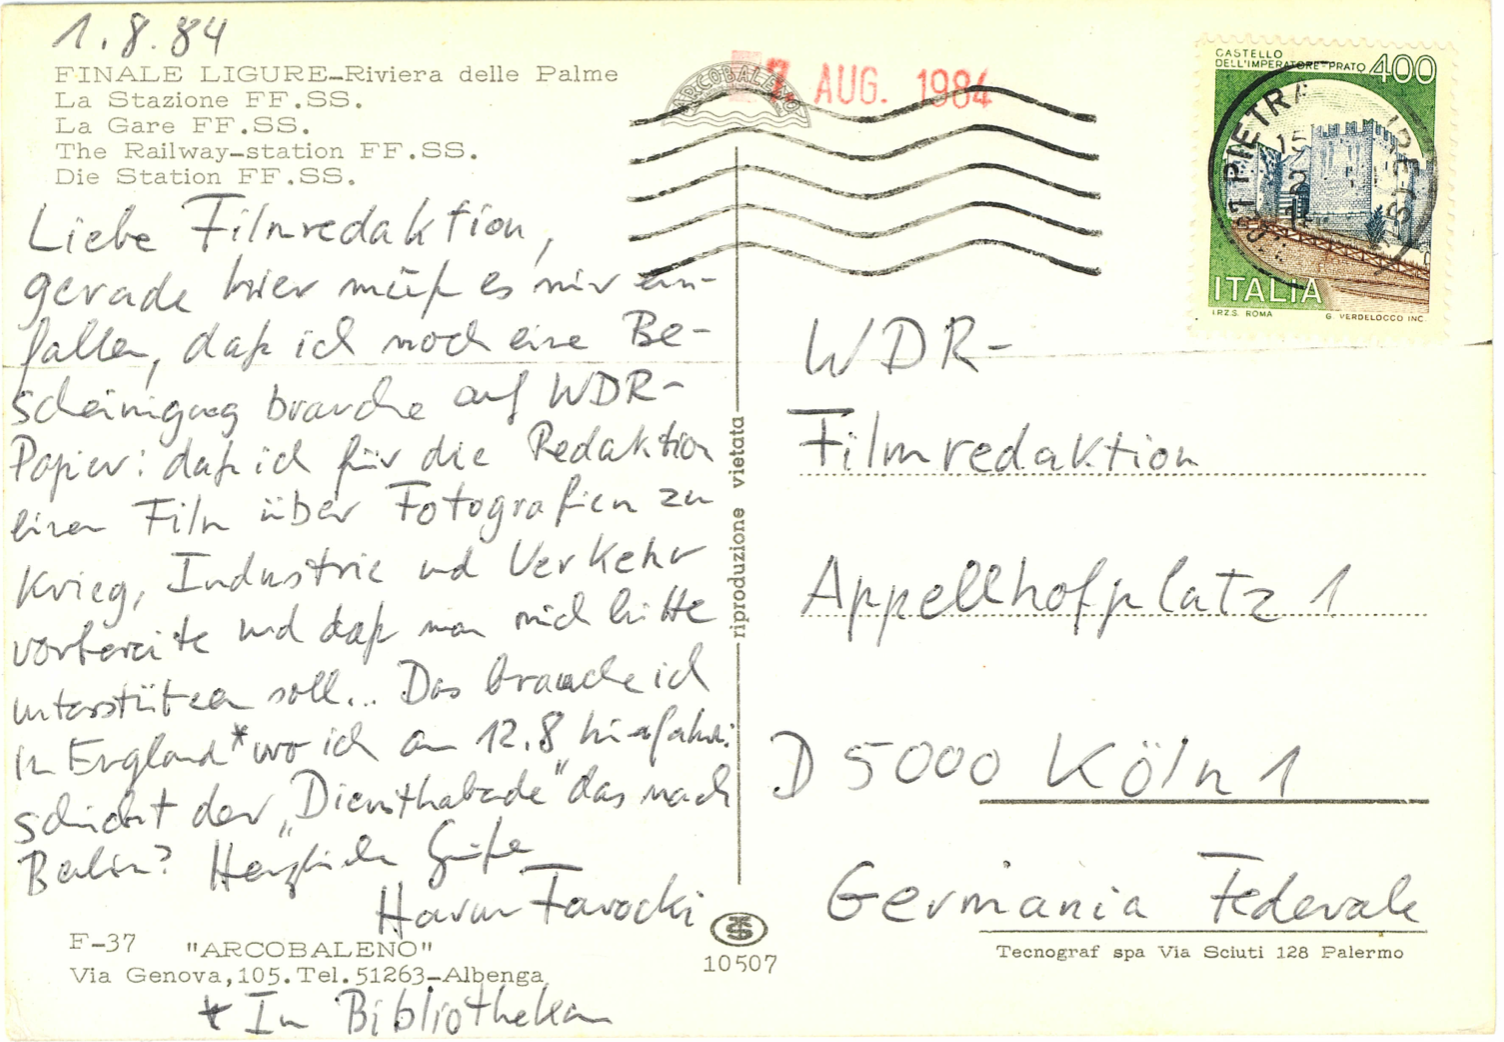 1.8.84
FINALE LIGURE-Riviera delle Palme
La Stazione FF.SS.
La Gare FF.SS.
The Railway-station FF.SS.
Die Station FF.SS.
Liebe Filmredaktion,
gerade hier muß es mir ein-
fallen, daß ich noch eine Be-
scheinigung brauche auf WDR-
Papier: daß ich für die Redaktion
einen Film über Fotografien zu
Krieg, Industrie und Verkehr
vorbereite und daß man mich bitte
unterstützen soll... Das brauche ich
in England* wo ich am 12.8 hinfahre.
schickt der „Diensthabende" das nach
Berlin? Herzliche Grüße
Harun Farocki
F-37 "ARCOBALENO"
Via Genova,105.Tel.51263-Albenga
* In Bibliotheken
riproduzione vietata
10507
ARCOBALENO
7. AUG. 1984
CASTELLO
DELL'IMPERATORE-PRATO 400
PIETRA
ITALIA
I.P.Z.S. ROMA G. VERDELOCCO INC.
WDR-
Filmredaktion
Appellhofplatz 1
D 5000 Köln 1
Germania Federale
Tecnograf spa Via Sciuti 128 Palermo